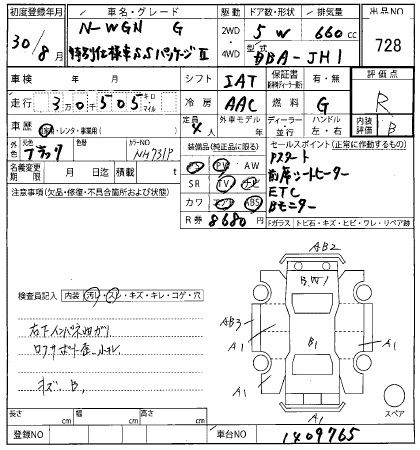 初度登録年月 車名・グレード 駆動 ドア数・形状 排気量 出品NO
30/8月 N-WGN G 2WD 5 W 660cc 728
特別仕様車SSパッケージⅡ 4WD 型式 DBA-JH1
車検 年 月 シフト IAT 保証書 有・無 評価点
走行 3万0千505 キロ マイル 冷房 AAC 燃料 G R
車歴 自家用・レンタ・事業用( ) 定員 4人 外車モデル 年 ディーラー 並行 ハンドル 左・右 内装評価 B
外色 元色 ブラック 色替 カラーNO NH731P 装備品(純正品に限る) セールスポイント(正常に作動するもの)
名義変更期限 月 日迄 積載 t PS PW AW Pスタート
注意事項(欠品・修復・不具合箇所および状態) SR TV ナビ 前席シートヒーター
カワ エアB ABS ETC
R券 8680円 Bモニター
Fガラス トビ石・キズ・ヒビ・ワレ・リペア跡
AB2
B,W1
検査員記入 内装 汚れ・スレ・キズ・キレ・コゲ・穴
AB3
A1
B1
A1
キズ、B,
A1
A1
スペア
長さ cm 幅 cm 高さ cm
登録NO 車台NO 1409765